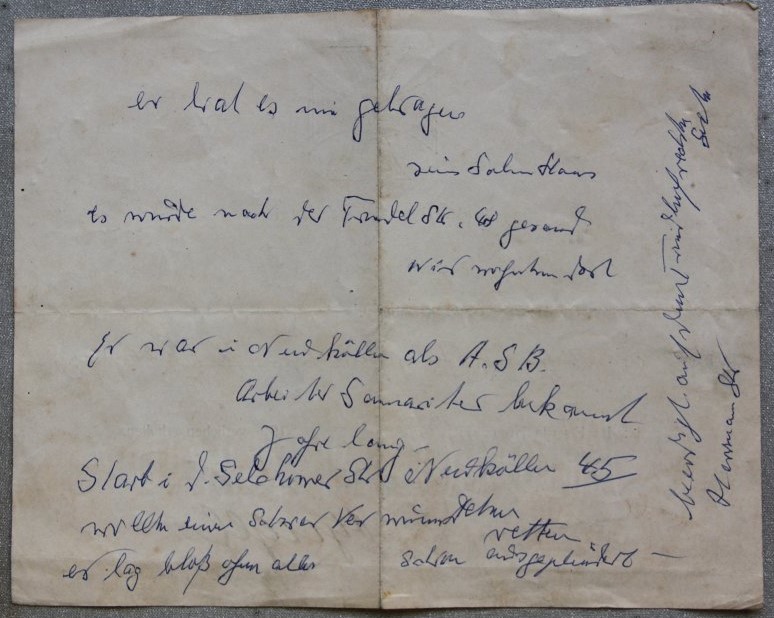 er hat es nie getragen
sein Sohn Klaus
es wurde nach der Str. 48 gesand
wir wohnten dort
Er war i Neukölln als A.S.B.
Arbeiter Samariter bekannt
Jahre lang
Starb i. d. Selchower Str. i Neukölln 45
wollte einen Schwer Verwundeten
retten
er lag bloß ohne alles schon ausgeplündert –
beerdigt auf
Hermannstr